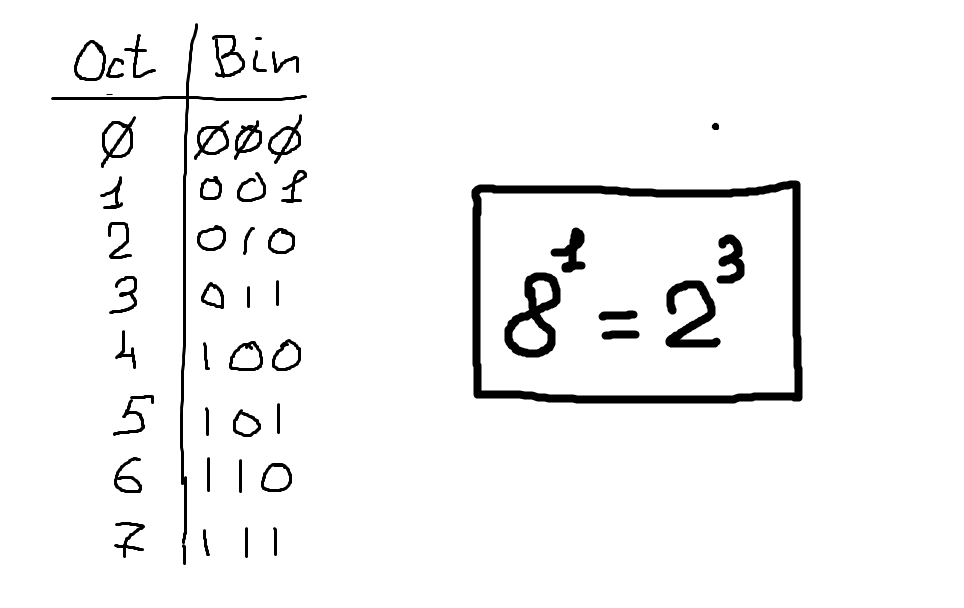 Oct Bin
0 000
1 001
2 010
3 011
4 100
5 101
6 110
7 111
8¹ = 2³